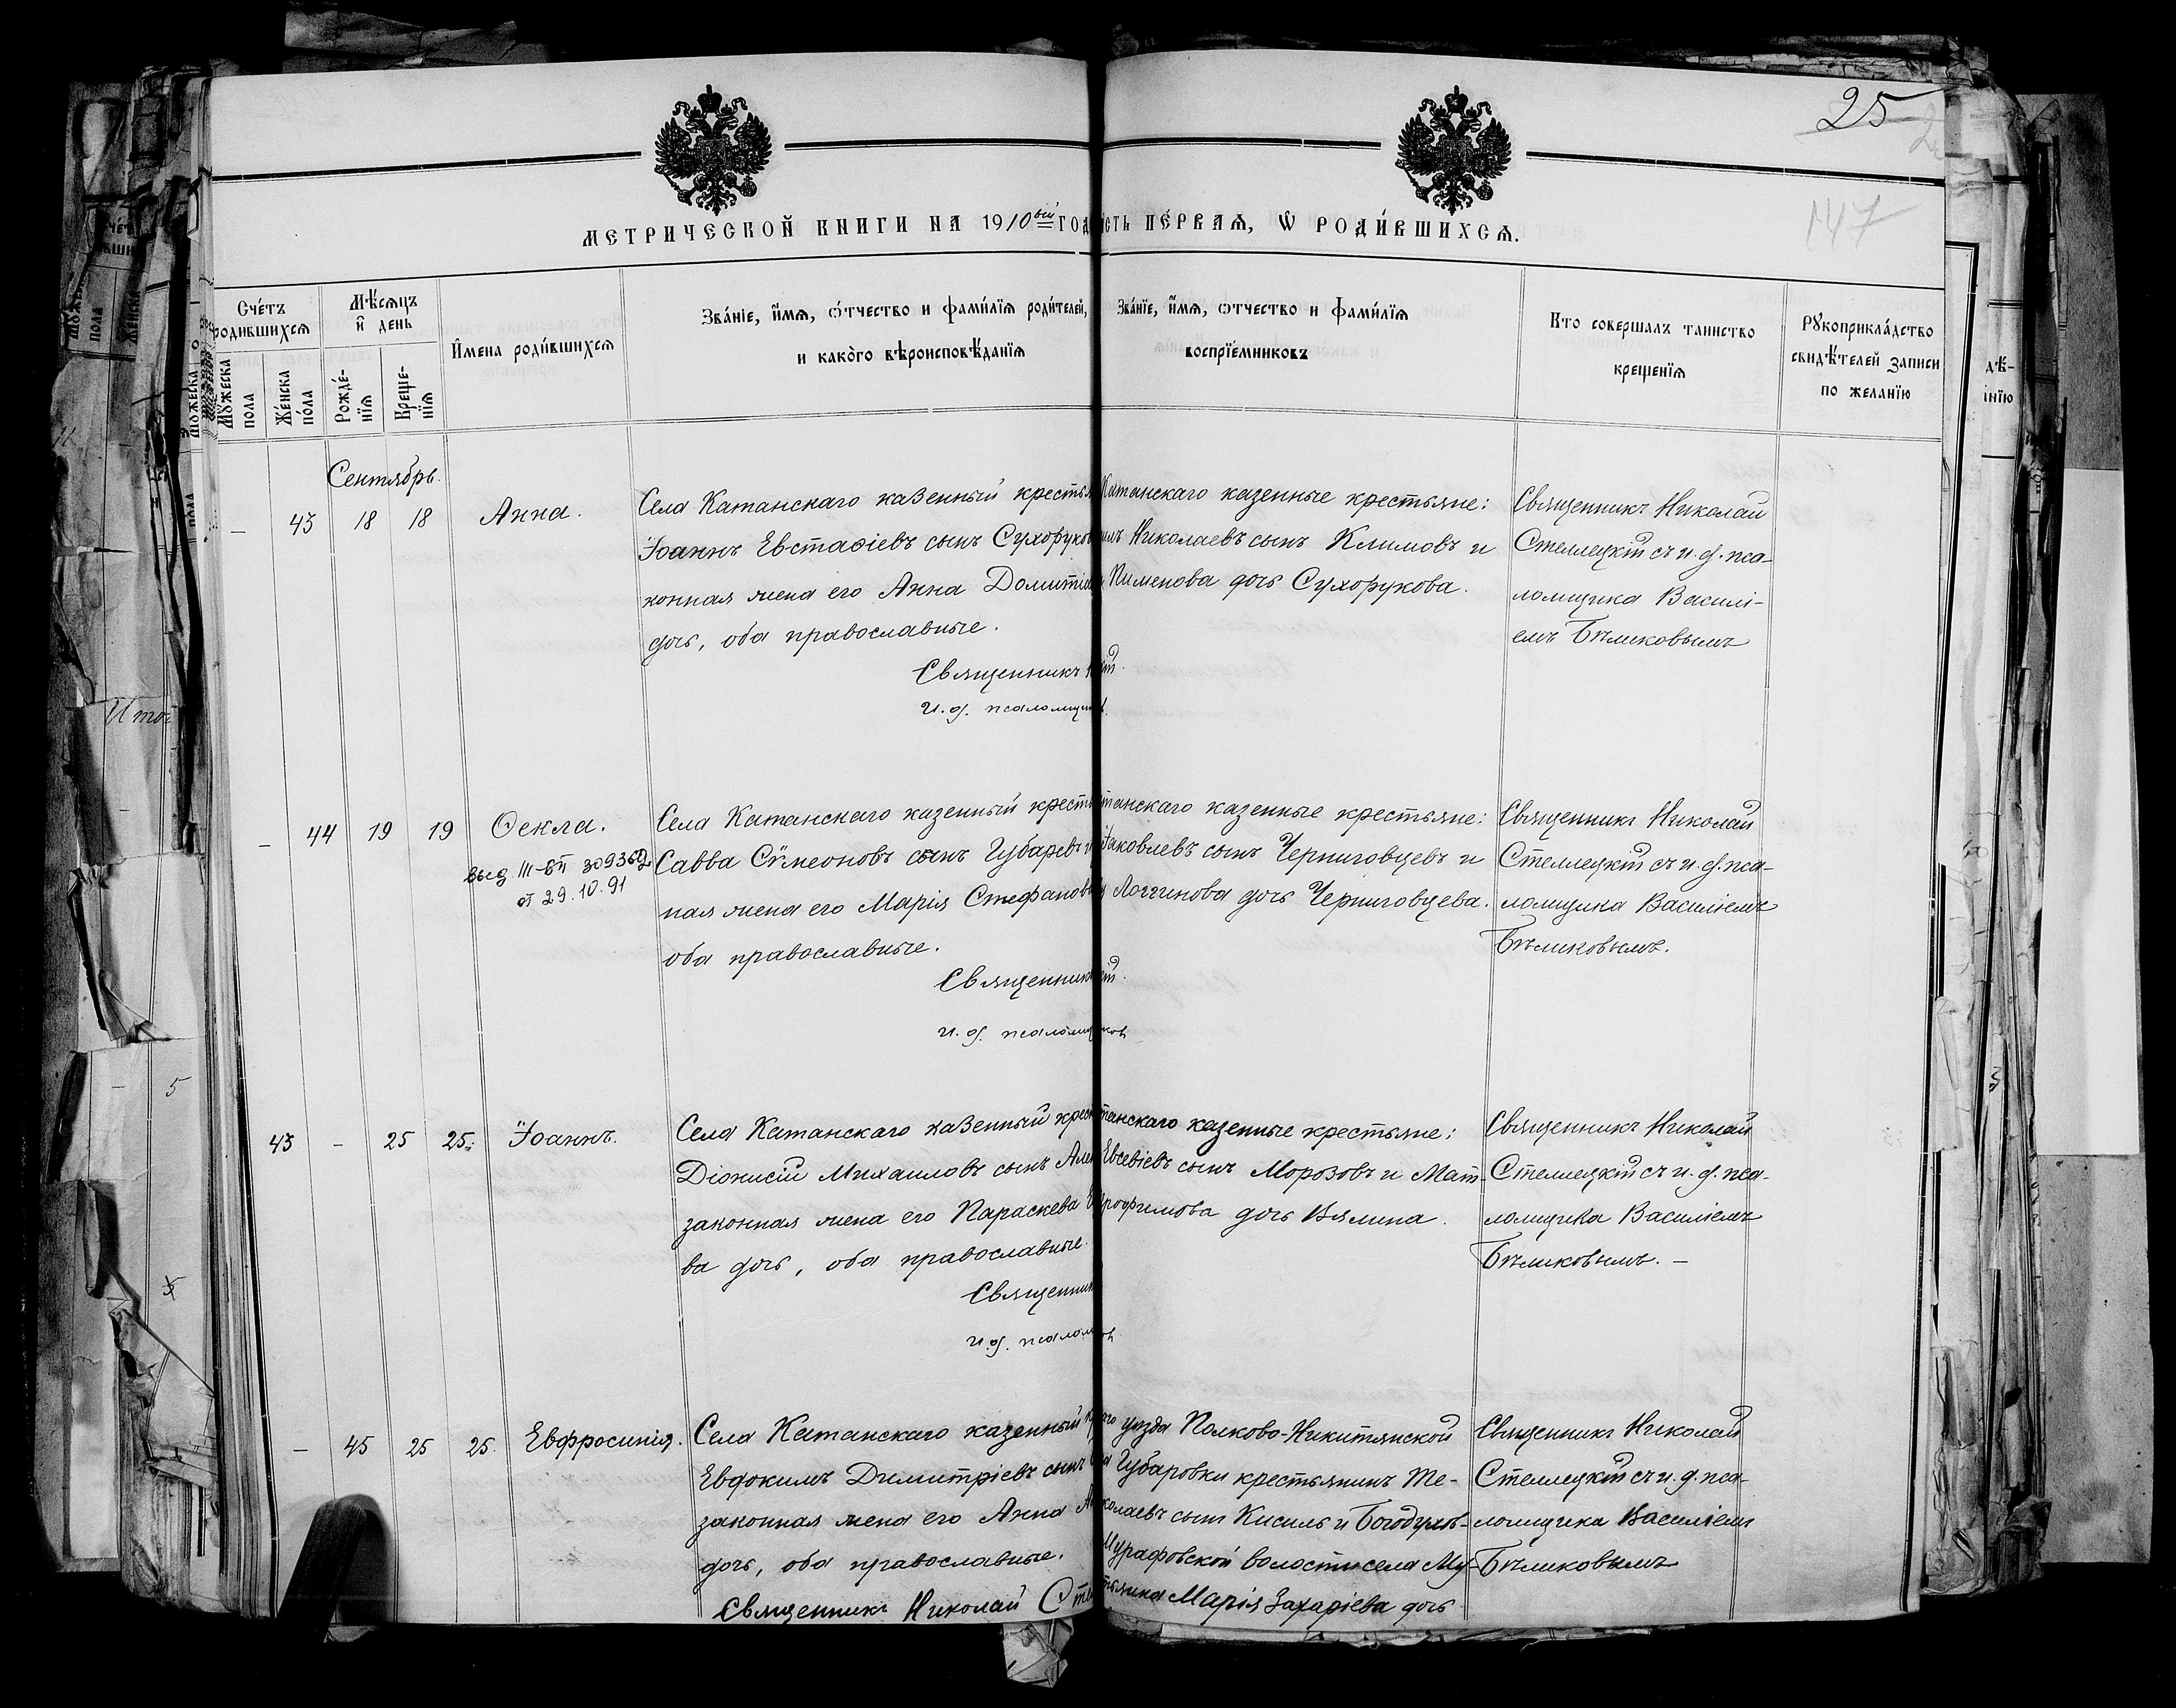 25
147
МЕТРИЧЕСКОЙ КНИГИ НА 1910ый ГОДЪ
ПЕ́РВАѦ, Ѡ РОДИ́ВШИХСѦ.
Сче́тъ родившихсѧ
Мꙋ́жеска пола
Же́нска по́ла
Мѣ́сѧцъ и҆ день
Рожде́-нїѧ
Креще-нїѧ
И҆мена роди́вшихсѧ
Зва́нїе, и҆́мѧ, ѻ҆́тчество и фами́лїѧ роди́телей,
и како́го вѣроисповѣ́данїѧ
Зва́нїе, и҆́мѧ, ѻтчество и фами́лїѧ
воспрїе́мниковъ
Кто совершалъ таинство
крещенїѧ
Рꙋкоприкла́дство
свидѣ́телей записи
по желанїю
Сентябрь.
— 43 18 18 Анна.
Села Катанскаго казенный
Іоаннъ Евстафіевъ сынъ
конная жена его Анна
дочь, оба православные.
Священникъ
и.д.
Катанскаго казенные крестьяне:
Николаевъ сынъ Климовъ и
Пименова дочь Сухорукова.
Священникъ Николай
Стеллецкій съ и.д. пса-
ломщика Василі-
емъ Бѣликовымъ
— 44 19 19 Ѳекла.
выд III-ВЛ 309362
от 29.10.91
Села Катанскаго казенный
Савва Сѵмеоновъ сынъ Губаревъ
ная жена его Марія
оба православные.
Священникъ
и.д.
казенные крестьяне:
Іаковлевъ сынъ Черниговцевъ и
Логгинова дочь Черниговцева.
Священникъ Николай
Стеллецкій съ и.д. пса-
ломщика Василіемъ
Бѣликовымъ.
43 — 25 25. Іоаннъ.
Села Катанскаго казенный
Діонисій Михаиловъ сынъ
законная жена его Параскева
ва дочь, оба православные.
и.д.
казенные крестьяне:
Евсевіевъ сынъ Морозовъ и Мат-
дочь Вялина.
Священникъ Николай
Стеллецкій съ и.д. пса-
ломщика Василіемъ
Бѣликовымъ. —
— 45 25 25. Евфросинія.
Села Катанскаго казенный
Евдокимъ Димитріевъ сынъ
законная жена его Анна
дочь, оба православные.
Священникъ Николай
уѣзда Полково-Никитянской
Губаровки крестьянинъ Те-
сынъ Кисиль и Богодухов-
Мурафовской волости села Му-
Марія Захаріева дочь
Священникъ Николай
Стеллецкій съ и.д. пса-
ломщика Василіемъ
Бѣликовымъ